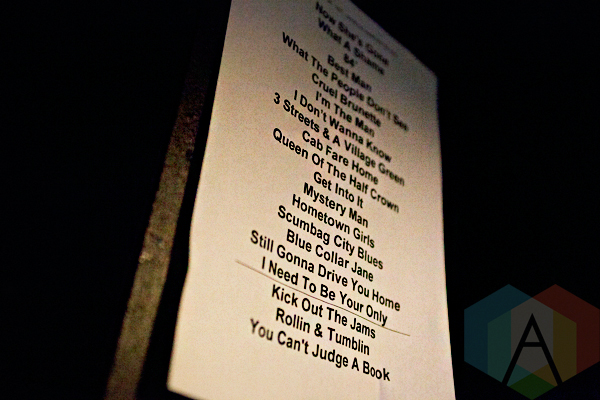 Now She's Gone
What A Shame
84'
Best Man
What The People Don't See
Cruel Brunette
I'm The Man
I Don't Wanna Know
3 Streets & A Village Green
Cab Fare Home
Queen Of The Half Crown
Get Into It
Mystery Man
Hometown Girls
Scumbag City Blues
Blue Collar Jane
Still Gonna Drive You Home
I Need To Be Your Only
Kick Out The Jams
Rollin & Tumblin
You Can't Judge A Book
A